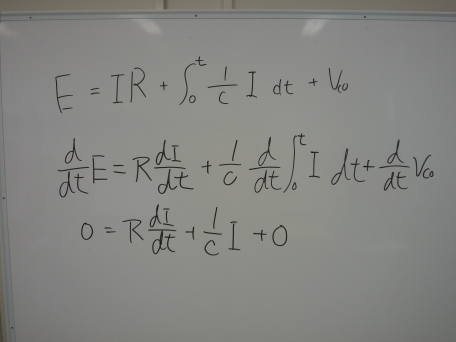 E = IR + ∫₀ᵗ 1/C I dt + V_C0
d/dt E = R dI/dt + 1/C d/dt ∫₀ᵗ I dt + d/dt V_C0
0 = R dI/dt + 1/C I + 0